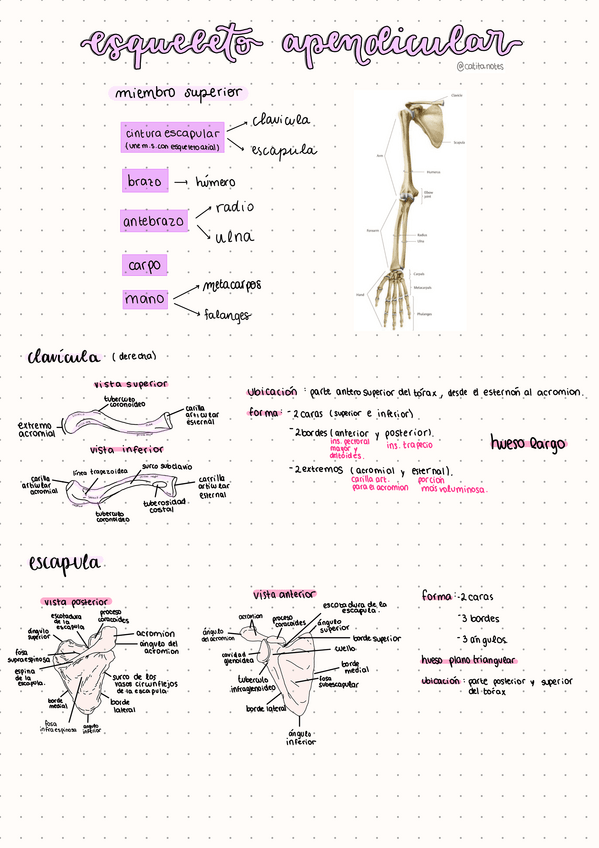 esqueleto apendicular
@catitanotes
miembro superior
cintura escapular
(une m.s. con esqueleto axial)
clavicula
escapula
brazo
húmero
antebrazo
radio
ulna
carpo
mano
metacarpos
falanges
Clavicle
Scapula
Arm
Humerus
Elbow
joint
Forearm
Radius
Ulna
Hand
Carpals
Metacarpals
Phalanges
clavícula (derecha)
vista superior
tuberculo
coronoideo
extremo
acromial
carilla
articular
esternal
vista inferior
carilla
articular
acromial
línea trapezoidea
surco subclavio
carrilla
articular
esternal
tuberculo
coronoideo
tuberosidad
costal
ubicación : parte antero superior del tórax, desde el esternón al acromion.
forma: - 2 caras (superior e inferior).
- 2 bordes (anterior y posterior).
ins. pectoral
mayor y
deltoides.
ins. trapecio
- 2 extremos (acromial y esternal).
carilla art.
para el acromion
porción
más voluminosa.
hueso largo
escapula
vista posterior
escotadura
de la
escapula
proceso
coracoides
ángulo
superior
acromion
ángulo del
acromion
fosa
supraespinosa
espina
de la
escapula.
surco de los
vasos circunflejos
de la escapula.
borde
medial
borde
lateral
fosa
infraespinosa
ángulo
inferior
vista anterior
acromion
proceso
coracoides
escotadura de la
escapula.
ángulo
superior
ángulo
del acromion
borde superior
cavidad
glenoidea
cuello
borde
medial
tuberculo
infraglenoideo
fosa
subescapular
borde lateral
ángulo
inferior
forma: - 2 caras
- 3 bordes
- 3 ángulos
hueso plano triangular
ubicación : parte posterior y superior
del tórax